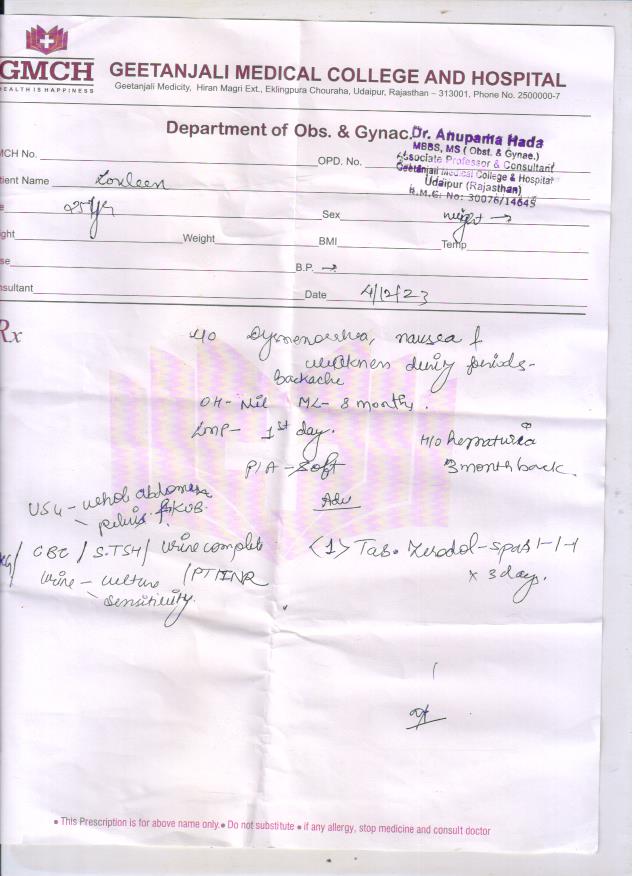 GMCH
EALTH IS HAPPINESS
GEETANJALI MEDICAL COLLEGE AND HOSPITAL
Geetanjali Medicity, Hiran Magri Ext., Eklingpura Chouraha, Udaipur, Rajasthan – 313001, Phone No. 2500000-7
Department of Obs. & Gynac.
Dr. Anupama Hada
MBBS, MS (Obst. & Gynae.)
Associate Professor & Consultant
Geetanjali Medical College & Hospital
Udaipur (Rajasthan)
R.M.C. No: 30076/14645
MCH No. OPD. No.
tient Name Lovleen
e 25yr Sex weight →
ght Weight BMI Temp
se B.P. →
nsultant Date 4/12/23
Rx
c/o Dysmenorrhea, nausea &
weakness during periods-
backache
OH- Nil ML- 8 months.
LMP- 1st day.
H/o hematuria
3 month back.
P/A - Soft
Adv
USG - whole abdomen
- pelvis KUB.
CBC / S.TSH / urine complete
urine - culture / PT/INR
- sensitivity.
<1> Tab. Zerodol-spas 1-1-1
x 3 day.
• This Prescription is for above name only. • Do not substitute • if any allergy, stop medicine and consult doctor